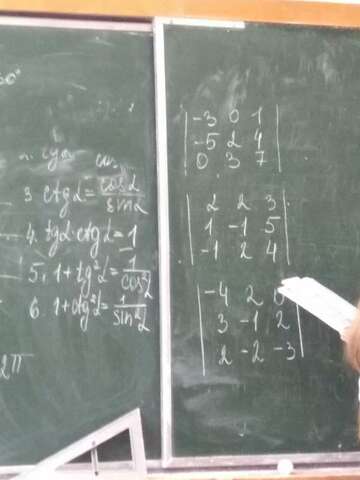 3. ctgα = cosα/sinα
4. tgα·ctgα = 1
5. 1+tg²α = 1/cos²α
6. 1+ctg²α = 1/sin²α
2π
|-3 0 1|
|-5 2 4|
|0 3 7|
|2 2 3|
|1 -1 5|
|-1 2 4|
|-4 2 0|
|3 -1 2|
|2 -2 -3|